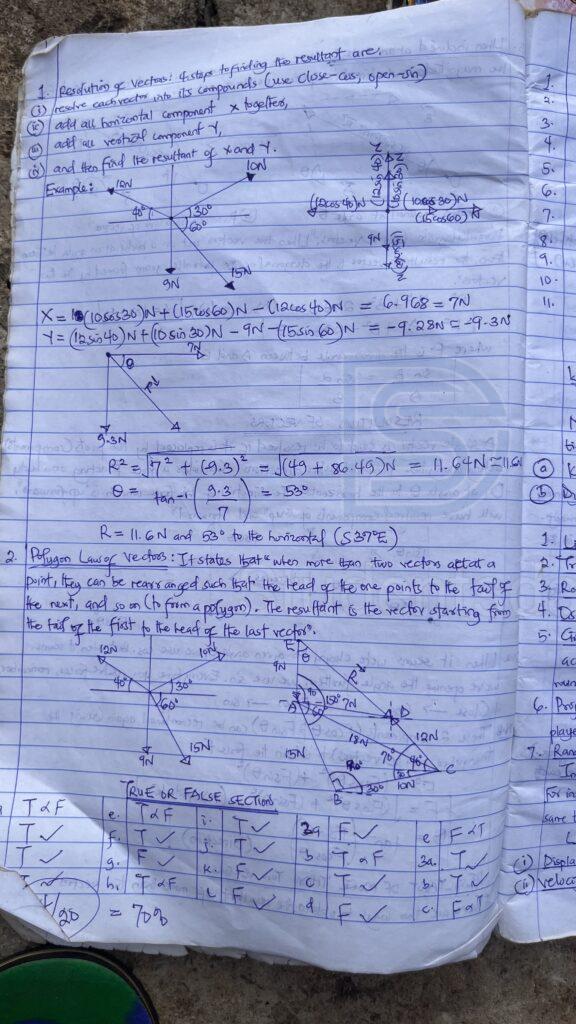 1. Resolution of vectors: 4 steps to finding the resultant are.
(i) resolve each vector into its compounds (use close-cos, open-sin)
(ii) add all horizontal component X together,
(iii) add all vertical component Y,
(iv) and then find the resultant of X and Y.
Example:
12N
10N
40°
30°
60°
9N
15N
(12cos40)N
(10cos30)N
(15cos60)N
9N
X = (10cos30)N + (15cos60)N - (12cos40)N = 6.968 = 7N
Y = (12sin40)N + (10sin30)N - 9N - (15sin60)N = -9.28N = -9.3N
7N
θ
R
9.3N
R² = √7² + (-9.3)² = √(49 + 86.49)N = 11.64N ≈ 11.6N
θ = tan-1 (9.3/7) = 53°
R = 11.6N and 53° to the horizontal (S37°E)
2. Polygon Law of Vectors: It states that "when more than two vectors act at a
point, they can be rearranged such that the head of the one points to the tail of
the next, and so on (to form a polygon). The resultant is the vector starting from
the tail of the first to the head of the last vector".
12N
10N
40°
30°
60°
9N
15N
E
θ
R
9N
150°
7N
A
60
D
18N
12N
70°
15N
C
10N
B
30°
TRUE OR FALSE SECTION
T α F
e. T α F
i. T ✓
2a F ✓
e F α T
T ✓
f. T ✓
j. T ✓
b T α F
3a. T ✓
T ✓
g. F ✓
k. F ✓
c T ✓
b. T ✓
T ✓
h. T α F
l F ✓
d F ✓
c. F α T
/20 = 70%
1.
2.
3.
4.
5.
6.
7.
8.
9.
10.
11.
(a)
(b)
1.
2.
3.
4.
5.
6.
7.
(i) Displa
(ii) veloc